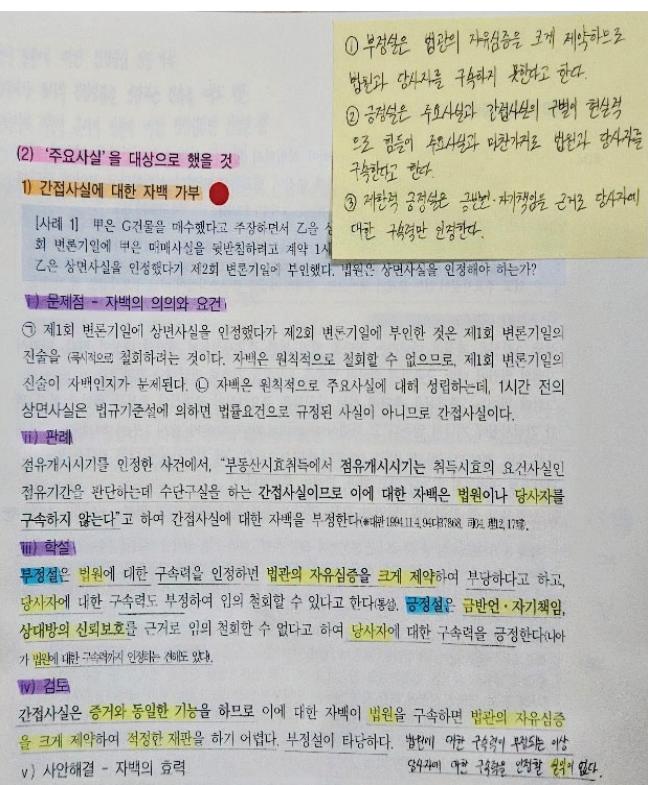 ① 부정설은 법관의 자유심증을 크게 제약하므로
법원과 당사자를 구속하지 못한다고 한다.
② 긍정설은 주요사실과 간접사실의 구별이 현실적
으로 힘들어 주요사실과 마찬가지로 법원과 당사자를
구속한다고 한다.
③ 제한적 긍정설은 금반언·자기책임을 근거로 당사자에
대한 구속력만 인정한다.
(2) ‘주요사실’을 대상으로 했을 것
1) 간접사실에 대한 자백 가부
[사례 1] 甲은 G건물을 매수했다고 주장하면서 乙을
회 변론기일에 甲은 매매사실을 뒷받침하려고 계약 1시
乙은 상면사실을 인정했다가 제2회 변론기일에 부인했다. 법원은 상면사실을 인정해야 하는가?
i) 문제점 - 자백의 의의와 요건
㉠ 제1회 변론기일에 상면사실을 인정했다가 제2회 변론기일에 부인한 것은 제1회 변론기일의
진술을 (묵시적으로) 철회하려는 것이다. 자백은 원칙적으로 철회할 수 없으므로, 제1회 변론기일의
진술이 자백인지가 문제된다. ㉡ 자백은 원칙적으로 주요사실에 대해 성립하는데, 1시간 전의
상면사실은 법규기준설에 의하면 법률요건으로 규정된 사실이 아니므로 간접사실이다.
ii) 판례
점유개시시기를 인정한 사건에서, “부동산시효취득에서 점유개시시기는 취득시효의 요건사실인
점유기간을 판단하는데 수단구실을 하는 간접사실이므로 이에 대한 자백은 법원이나 당사자를
구속하지 않는다”고 하여 간접사실에 대한 자백을 부정한다(※대판 1994.11.4, 94다37868,
iii) 학설
부정설은 법원에 대한 구속력을 인정하면 법관의 자유심증을 크게 제약하여 부당하다고 하고,
당사자에 대한 구속력도 부정하여 임의 철회할 수 있다고 한다(통설). 긍정설은 금반언·자기책임,
상대방의 신뢰보호를 근거로 임의 철회할 수 없다고 하여 당사자에 대한 구속력을 긍정한다(나아
가 법원에 대한 구속력까지 인정하는 견해도 있다).
iv) 검토
간접사실은 증거와 동일한 기능을 하므로 이에 대한 자백이 법원을 구속하면 법관의 자유심증
을 크게 제약하여 적정한 재판을 하기 어렵다. 부정설이 타당하다. 법원에 대한 구속력이 부정되는 이상
당사자에 대한 구속력을 인정할 실익이 없다.
v) 사안해결 - 자백의 효력